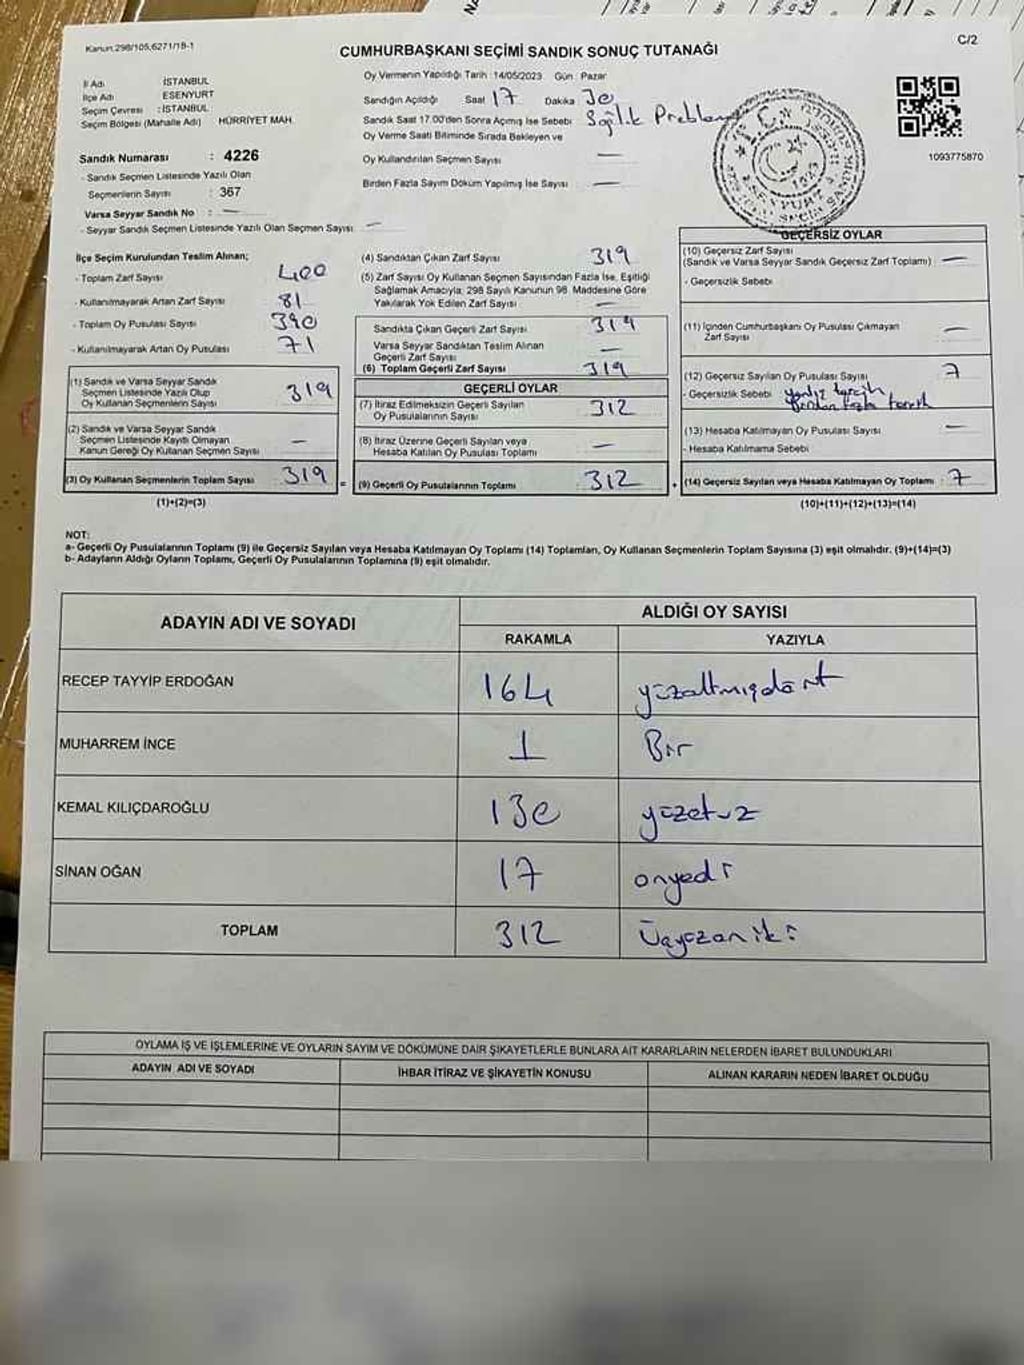 Kanun:298/105,6271/18-1
C/2
CUMHURBAŞKANI SEÇİMİ SANDIK SONUÇ TUTANAĞI
İl Adı İSTANBUL
İlçe Adı ESENYURT
Seçim Çevresi : İSTANBUL
Seçim Bölgesi (Mahalle Adı) HÜRRİYET MAH.
Sandık Numarası : 4226
- Sandık Seçmen Listesinde Yazılı Olan
Seçmenlerin Sayısı : 367
Varsa Seyyar Sandık No : —
- Seyyar Sandık Seçmen Listesinde Yazılı Olan Seçmen Sayısı —
Oy Vermenin Yapıldığı Tarih :14/05/2023 Gün : Pazar
Sandığın Açıldığı Saat 17 Dakika 30
Sandık Saat 17.00'den Sonra Açımış İse Sebebi Sağlık Problem
Oy Verme Saati Bitiminde Sırada Bekleyen ve
Oy Kullandırılan Seçmen Sayısı —
Birden Fazla Sayım Döküm Yapılmış İse Sayısı —
ESENYURT
1093775870
İlçe Seçim Kurulundan Teslim Alınan;
- Toplam Zarf Sayısı 400
- Kullanılmayarak Artan Zarf Sayısı 81
- Toplam Oy Pusulası Sayısı 390
- Kullanılmayarak Artan Oy Pusulası 71
(1) Sandık ve Varsa Seyyar Sandık
Seçmen Listesinde Yazılı Olup
Oy Kullanan Seçmenlerin Sayısı 319
(2) Sandık ve Varsa Seyyar Sandık
Seçmen Listesinde Kayıtlı Olmayan
Kanun Gereği Oy Kullanan Seçmen Sayısı —
(3) Oy Kullanan Seçmenlerin Toplam Sayısı 319
(1)+(2)=(3)
(4) Sandıktan Çıkan Zarf Sayısı 319
(5) Zarf Sayısı Oy Kullanan Seçmen Sayısından Fazla İse, Eşitliği
Sağlamak Amacıyla; 298 Sayılı Kanunun 98. Maddesine Göre
Yakılarak Yok Edilen Zarf Sayısı —
Sandıkta Çıkan Geçerli Zarf Sayısı 319
Varsa Seyyar Sandıktan Teslim Alınan
Geçerli Zarf Sayısı —
(6) Toplam Geçerli Zarf Sayısı 319
GEÇERLİ OYLAR
(7) İtiraz Edilmeksizin Geçerli Sayılan
Oy Pusulalarının Sayısı 312
(8) İtiraz Üzerine Geçerli Sayılan veya
Hesaba Katılan Oy Pusulası Toplamı —
= (9) Geçerli Oy Pusulalarının Toplamı 312
GEÇERSİZ OYLAR
(10) Geçersiz Zarf Sayısı
(Sandık ve Varsa Seyyar Sandık Geçersiz Zarf Toplamı) —
- Geçersizlik Sebebi
(11) İçinden Cumhurbaşkanı Oy Pusulası Çıkmayan
Zarf Sayısı —
(12) Geçersiz Sayılan Oy Pusulası Sayısı 7
- Geçersizlik Sebebi : yanlız tercih
birden fazla tercih
(13) Hesaba Katılmayan Oy Pusulası Sayısı —
- Hesaba Katılmama Sebebi
+ (14) Geçersiz Sayılan veya Hesaba Katılmayan Oy Toplamı : 7
(10)+(11)+(12)+(13)=(14)
NOT:
a- Geçerli Oy Pusulalarının Toplamı (9) ile Geçersiz Sayılan veya Hesaba Katılmayan Oy Toplamı (14) Toplamları, Oy Kullanan Seçmenlerin Toplam Sayısına (3) eşit olmalıdır. (9)+(14)=(3)
b- Adayların Aldığı Oyların Toplamı, Geçerli Oy Pusulalarının Toplamına (9) eşit olmalıdır.
ADAYIN ADI VE SOYADI
ALDIĞI OY SAYISI
RAKAMLA YAZIYLA
RECEP TAYYİP ERDOĞAN 164 yüzaltmışdört
MUHARREM İNCE 1 Bir
KEMAL KILIÇDAROĞLU 130 yüzotuz
SİNAN OĞAN 17 onyedi
TOPLAM 312 Üçyüzoniki
OYLAMA İŞ VE İŞLEMLERİNE VE OYLARIN SAYIM VE DÖKÜMÜNE DAİR ŞİKAYETLERLE BUNLARA AİT KARARLARIN NELERDEN İBARET BULUNDUKLARI
ADAYIN ADI VE SOYADI İHBAR İTİRAZ VE ŞİKAYETİN KONUSU ALINAN KARARIN NEDEN İBARET OLDUĞU